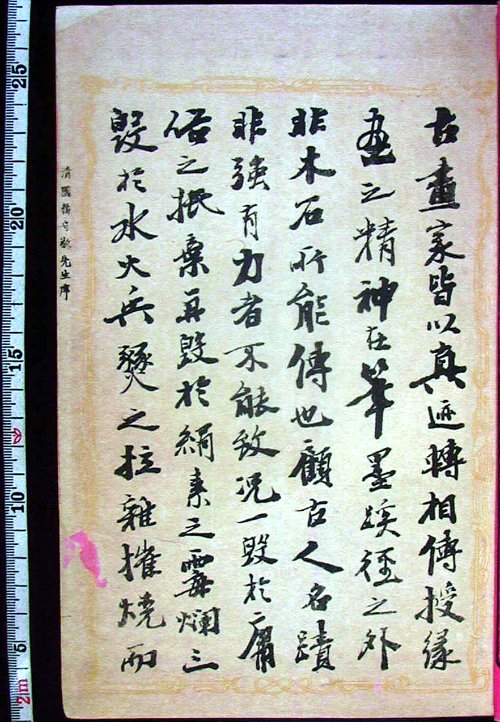 古畫家皆以真迹轉相傳授緣
畫之精神在筆墨蹊徑之外
非木石所能傳也顧古人名蹟
非強有力者不能致况一毀於庸
俗之抵棄再毀於絹素之霉爛三
毀於水火兵燹之拉雜摧燒而
清國楊守敬先生序
25
20
15
10
5
2m